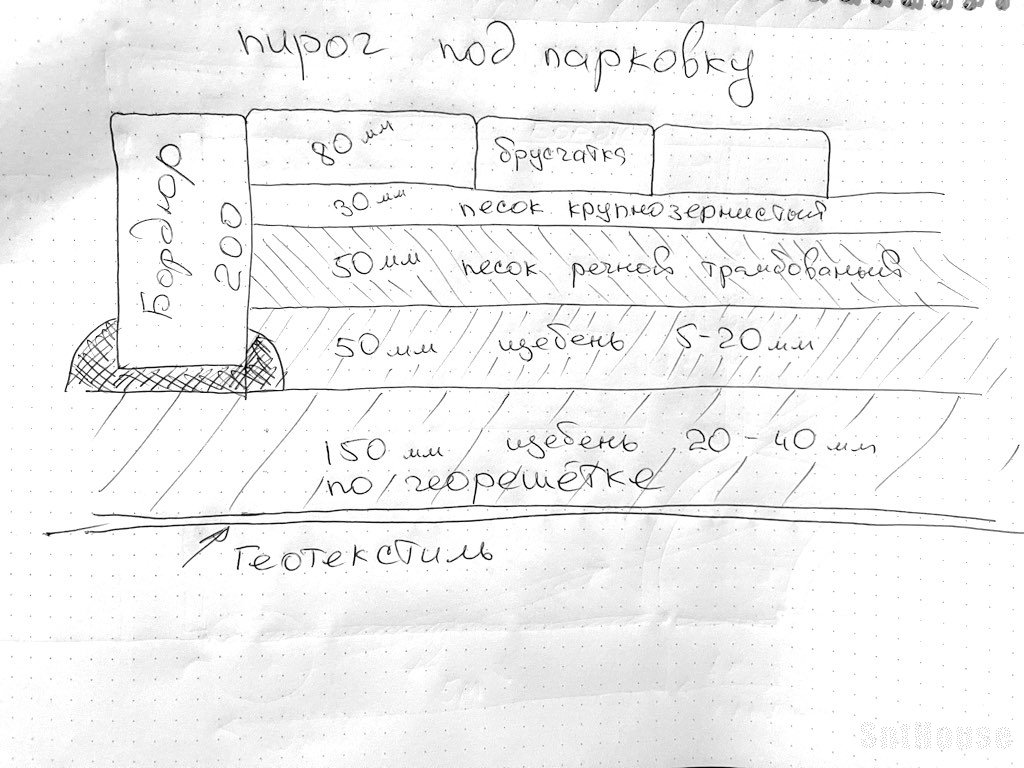 пирог под парковку
80 мм брусчатка
Бордюр
200
30 мм песок крупнозернистый
50 мм песок речной трамбованый
50 мм щебень 5-20 мм
150 мм щебень 20-40 мм
по георешётке
Геотекстиль
SntHouse